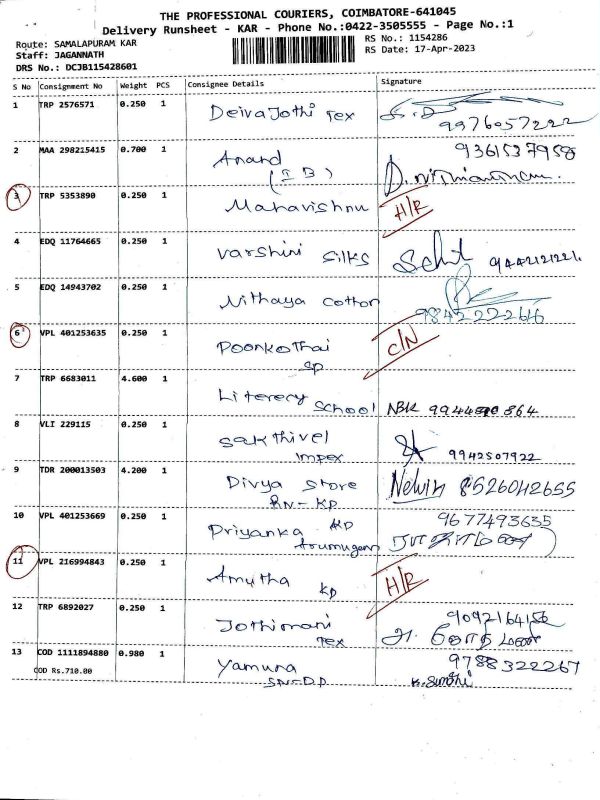 THE PROFESSIONAL COURIERS, COIMBATORE-641045
Delivery Runsheet - KAR - Phone No.:0422-3505555 - Page No.:1
Route: SAMALAPURAM KAR
Staff: JAGANNATH
DRS No.: DCJB115428601
RS No.: 1154286
RS Date: 17-Apr-2023
S No Consignment No Weight PCS Consignee Details Signature
1 TRP 2576571 0.250 1 Deiva Jothi Tex
9976057222
2 MAA 298215415 0.700 1 Anand 9361537958
(I B)
3 TRP 5353890 0.250 1 Mahavishnu H/R
4 EDQ 11764665 0.250 1 varshini silks 9442121221.
5 EDQ 14943702 0.250 1 Nithaya cotton
9842222616
6 VPL 401253635 0.250 1 Poonkothai C/N
SP
7 TRP 6683011 4.600 1 Literery school NBK
8 VLI 229115 0.250 1 sakthivel
impex 9942507922
9 TDR 200013503 4.200 1 Divya store Nelvin 8526042655
RN-KP
10 VPL 401253669 0.250 1 Priyanka KP 9677493635
Arumugam
11 VPL 216994843 0.250 1 Amutha KP H/R
12 TRP 6892027 0.250 1 Jothimani
Tex
13 COD 1111894880 0.980 1 Yamuna 9788322267
COD Rs.710.00